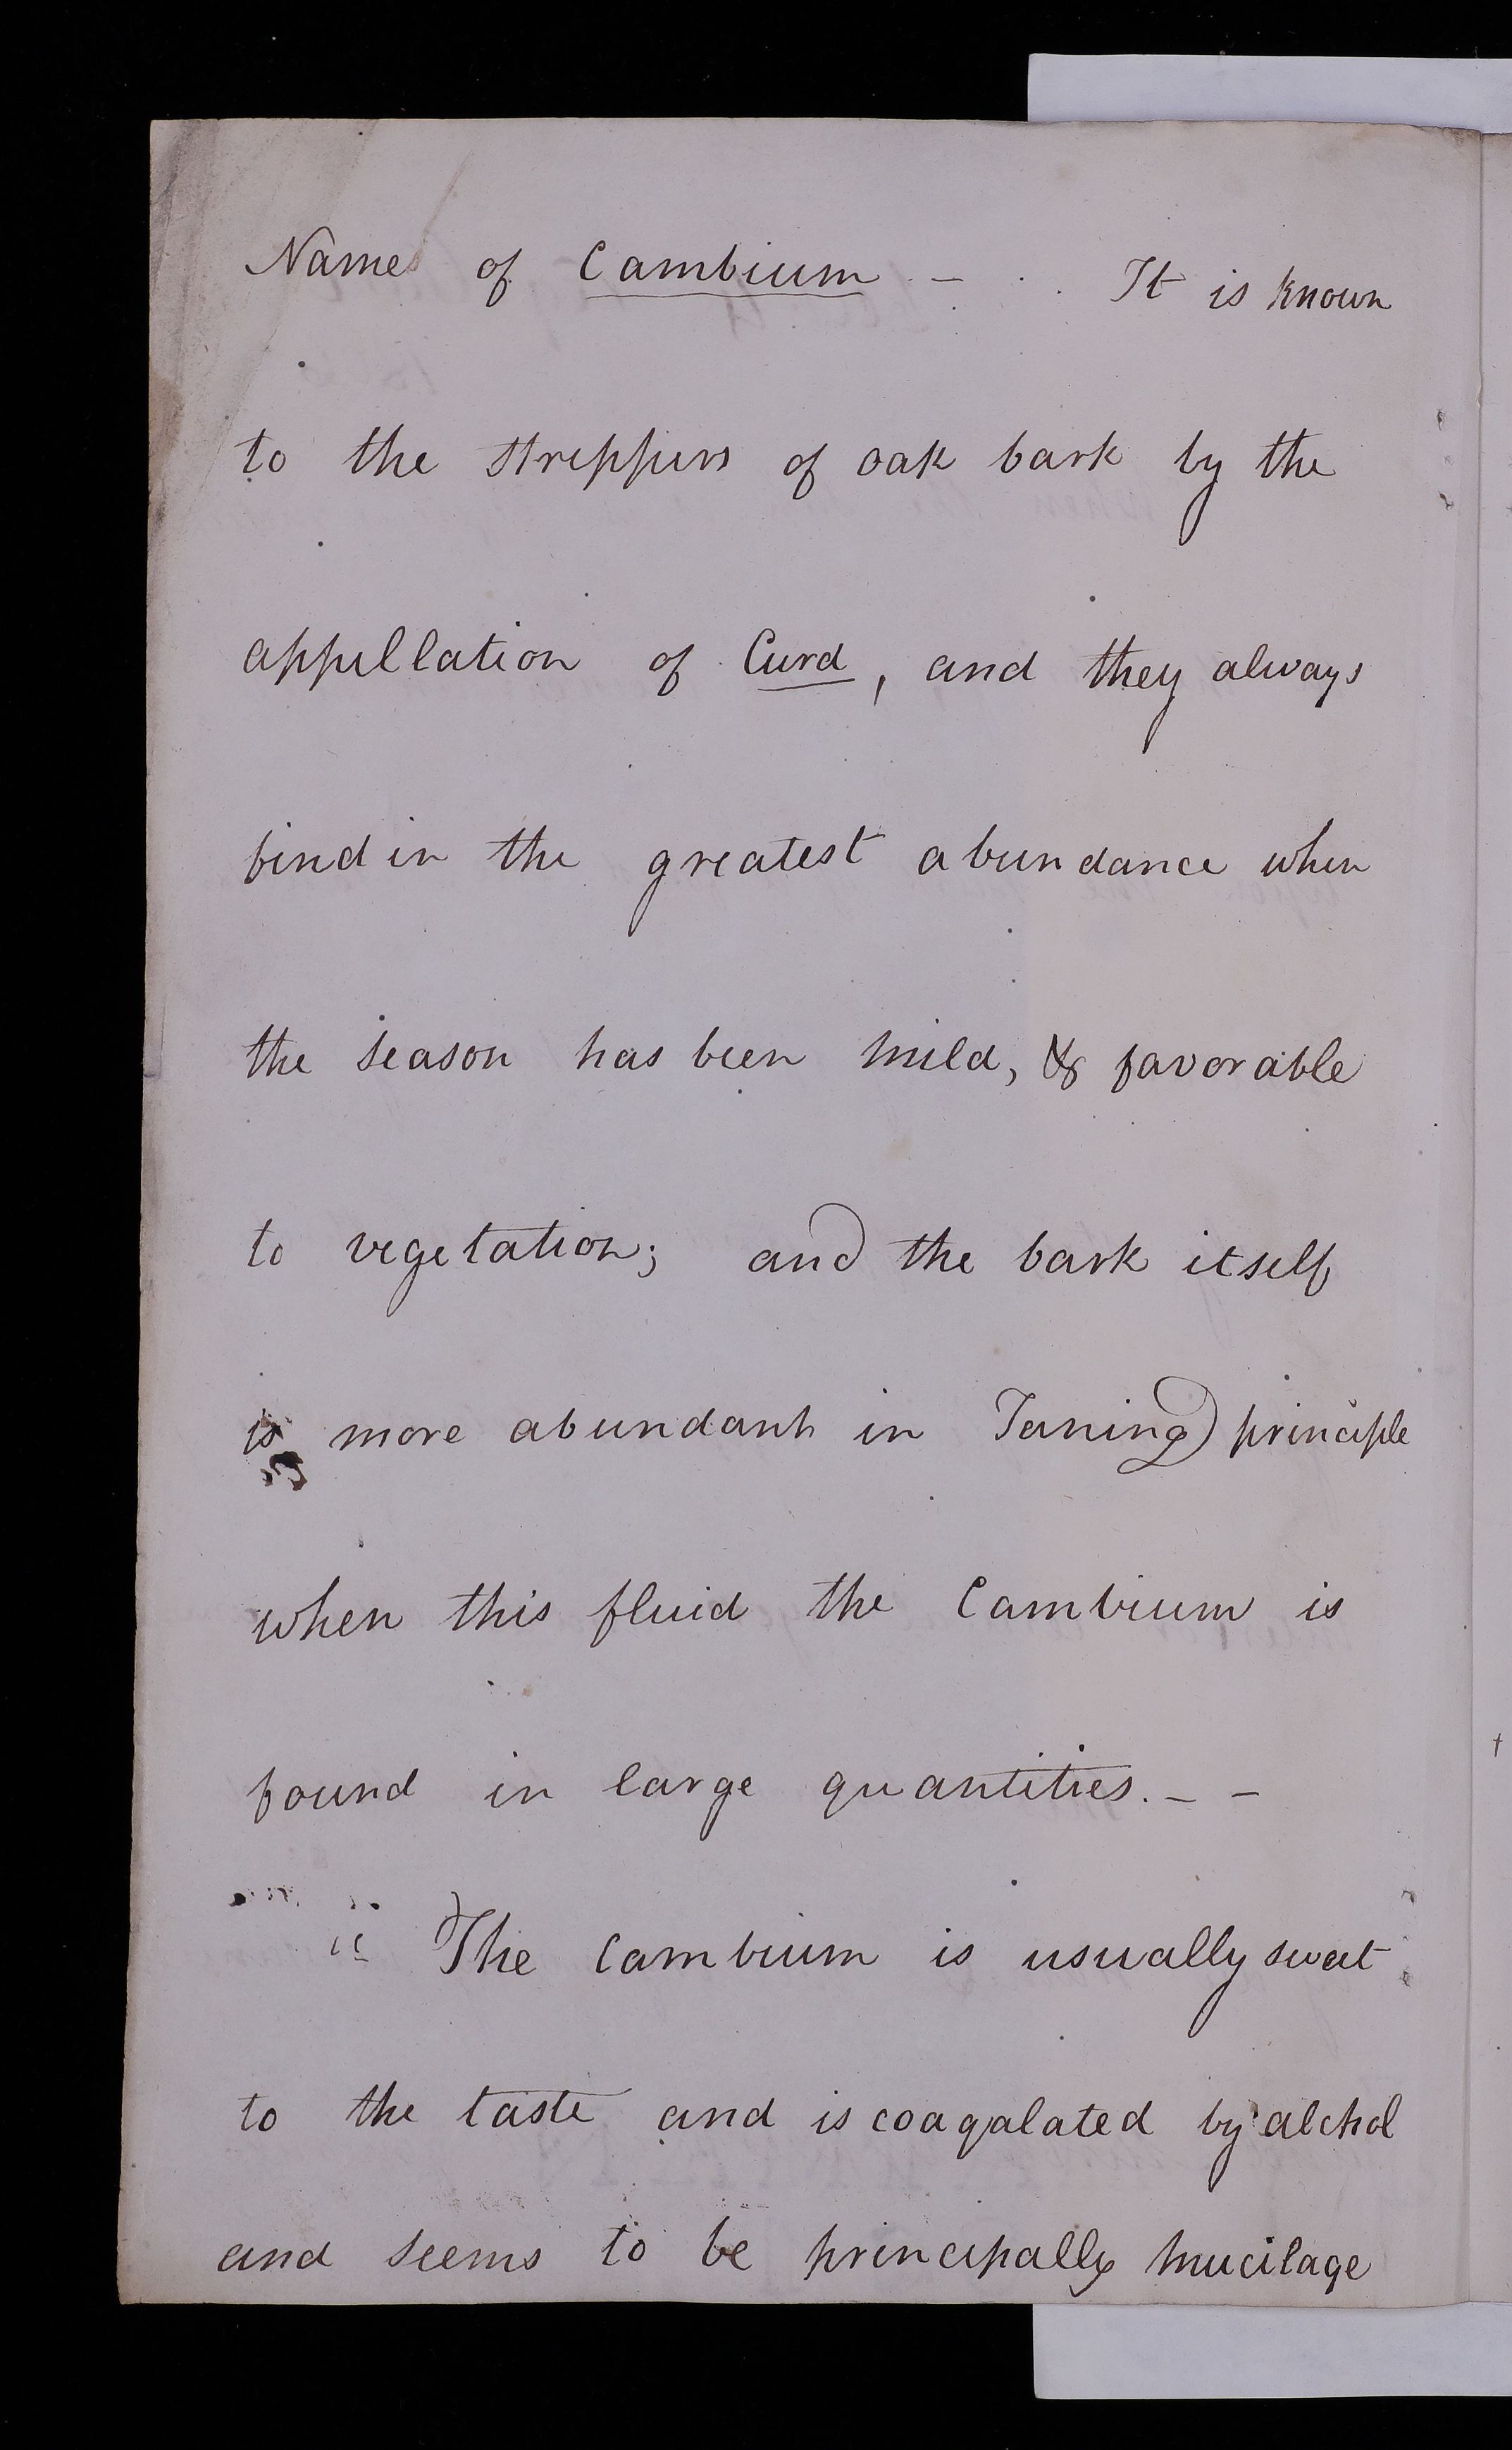 Names of Cambium - It is known
to the strippers of oak bark by the
appellation of Curd, and they always
find in the greatest abundance when
the season has been mild, & favorable
to vegetation; and the bark itself
is more abundant in Taning principle
when this fluid the Cambium is
found in large quantities. - -
" The Cambium is usually sweet
to the taste and is coagalated by alchol
and seems to be principally mucilage